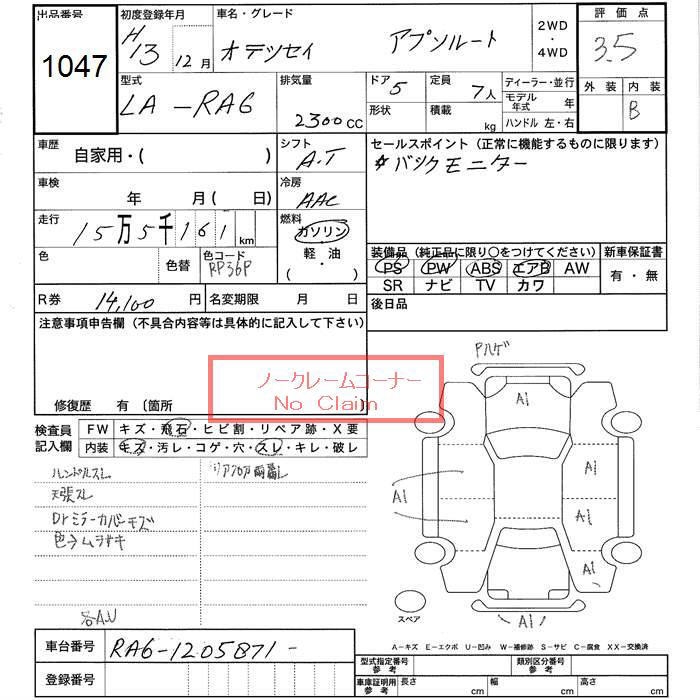 出品番号 初度登録年月 車名・グレード 2WD ・ 4WD 評価点
1047 H13 12月 オデッセイ アブソルート 3.5
型式 排気量 ドア 5 定員 7人 ディーラー・並行 外装 内装
LA-RA6 2300cc 形状 積載 kg モデル年式 年 B
ハンドル 左・右
車歴 自家用・( ) シフト A.T セールスポイント(正常に機能するものに限ります)
バックモニター
車検 年 月(日) 冷房 AAC
走行 15万5千161km 燃料 ガソリン・軽油・( )
装備品(純正品に限り〇をつけてください) 新車保証書
色 色替 色コード RP36P PS PW ABS エアB AW 有・無
SR ナビ TV カワ
R券 14,100円 名変期限 月 日 後日品
注意事項申告欄(不具合内容等は具体的に記入して下さい)
ノークレームコーナー
No Claim
修復歴 有〔箇所
Fハゲ
検査員記入欄 FW キズ・飛石・ヒビ割・リペア跡・X要
内装 キズ・汚レ・コゲ・穴・スレ・キレ・破レ
ハンドルスレ
天張スレ
Drミラーカバーキズ
色ムラ
各A.U
A1
A1
A1
A1
A1
A1
A1
スペア
車台番号 RA6-1205871-
A-キズ E-エクボ U-凹み W-補修跡 S-サビ C-腐食 XX-交換済
登録番号
型式指定番号 参考 類別区分番号 参考
車庫証明用 参考 長さ cm 幅 cm 高さ cm